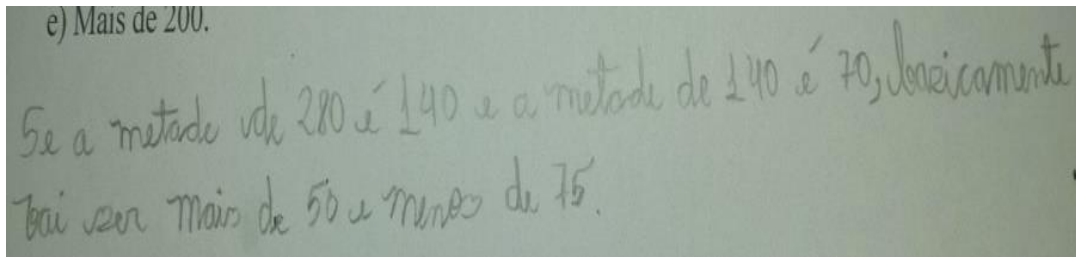 e) Mais de 200.
Se a metade de 280 é 140 e a metade de 140 é 70, logicamente
vai ser mais de 50 e menos de 75.